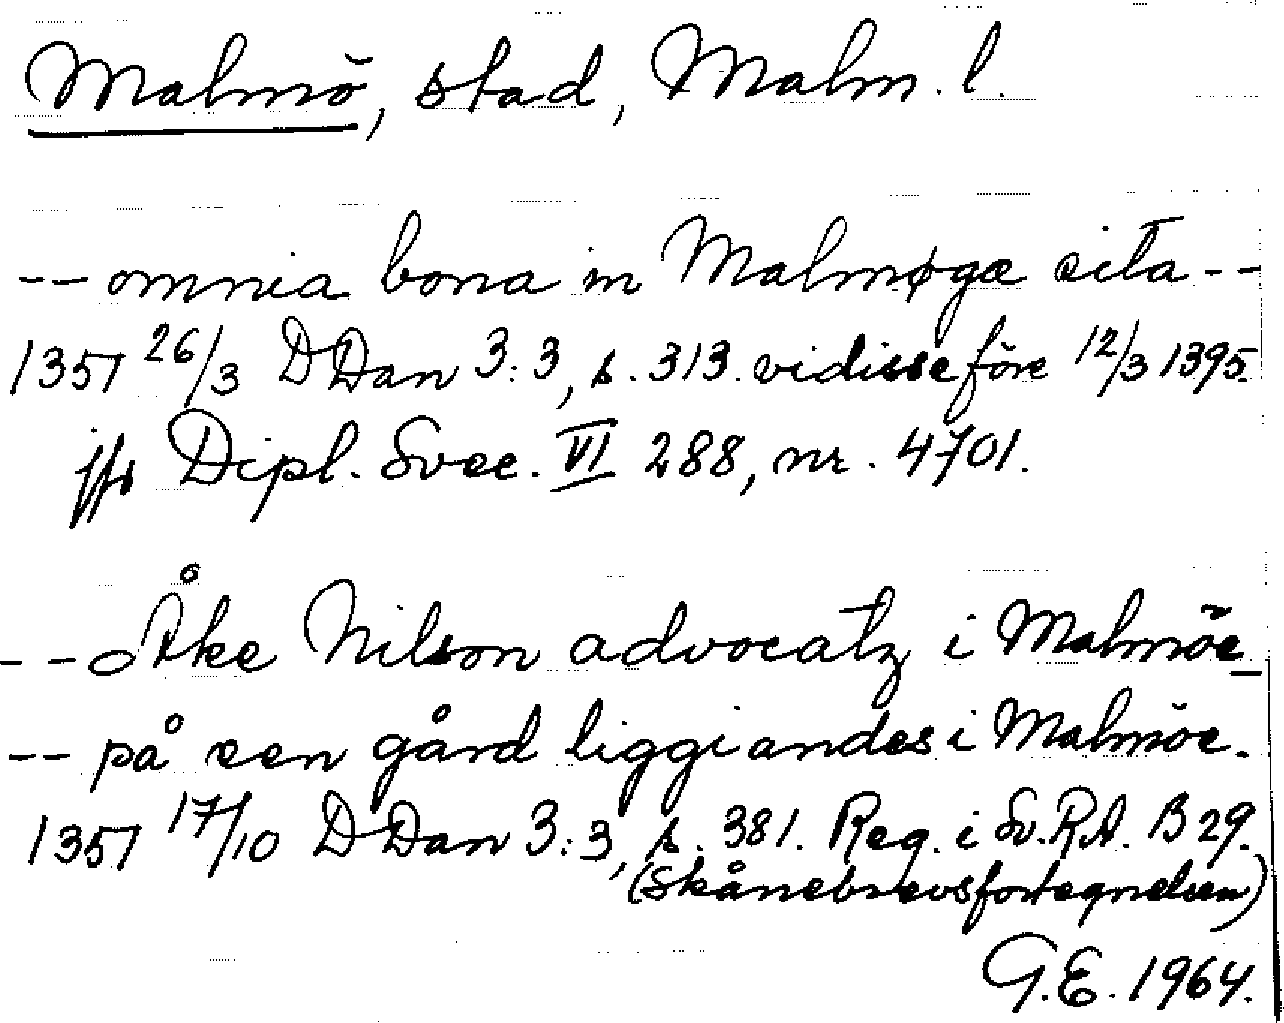 Malmö, stad, Malm. l.
-- omnia bona in Malmøgæ sita --
1357 26/3 DDan 3:3, s. 313. vidisse före 12/3 1395.
jfr Dipl. Svec. VI 288, nr. 4701.
-- Åke Nilson advocatz i Malmöe
-- på een gård liggiandes i Malmöe.
1357 17/10 DDan 3:3, s. 381. Reg. i Sv.R.A. B 29.
(Skånebrevsfortegnelsen)
G.E. 1964.